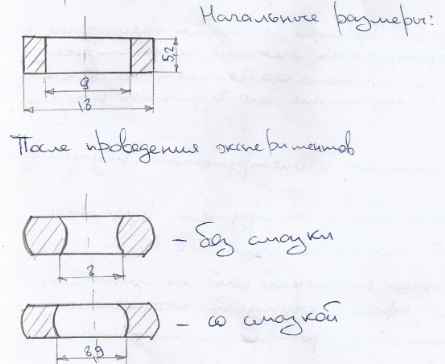 Начальные размеры:
5,2
После проведения экспериментов
– без смазки
– со смазкой
8,9